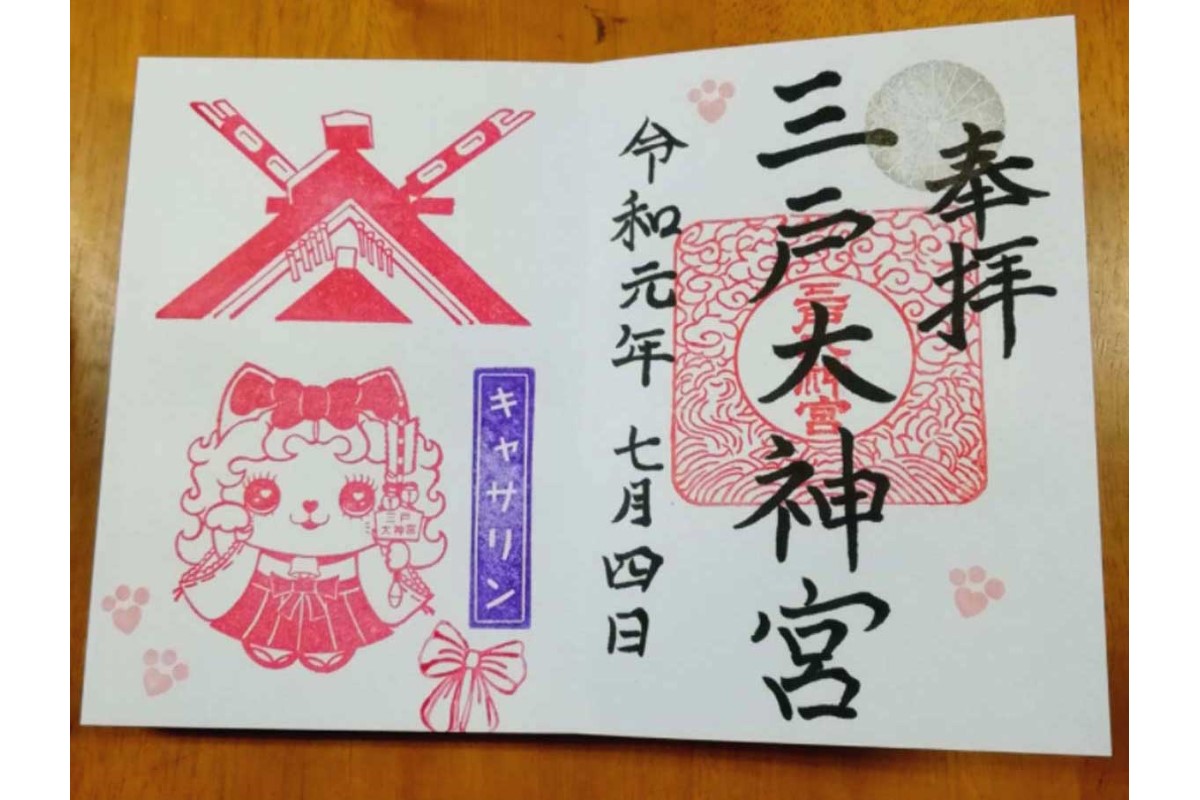 奉拝
三戸大神宮
三戸大神宮
令和元年 七月四日
キャサリン
三戸
大神宮